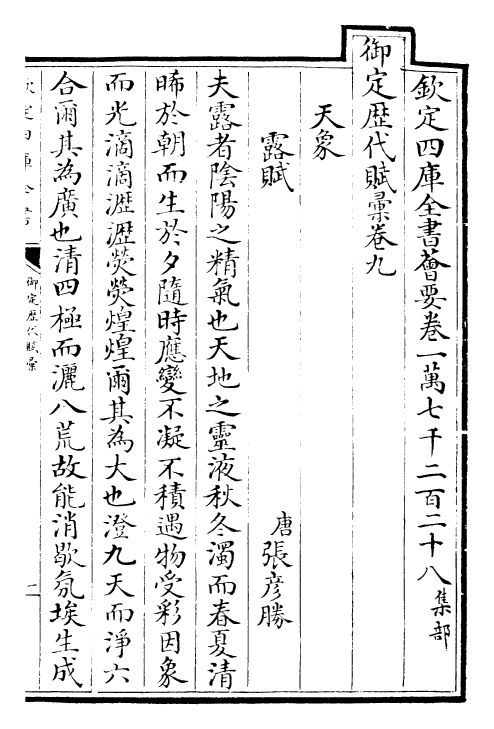 欽定四庫全書薈要卷一萬七千二百二十八集部
御定歴代賦彙卷九
天象
露賦
唐張彦勝
夫露者陰陽之精氣也天地之靈液秋冬濁而春夏清
晞於朝而生於夕隨時應變不凝不積遇物受彩因象
而光滴滴瀝瀝熒熒煌煌爾其為大也澄九天而淨六
合爾其為廣也清四極而灑八荒故能消歇氛埃生成
欽定四庫全書
御定歴代賦彙
一